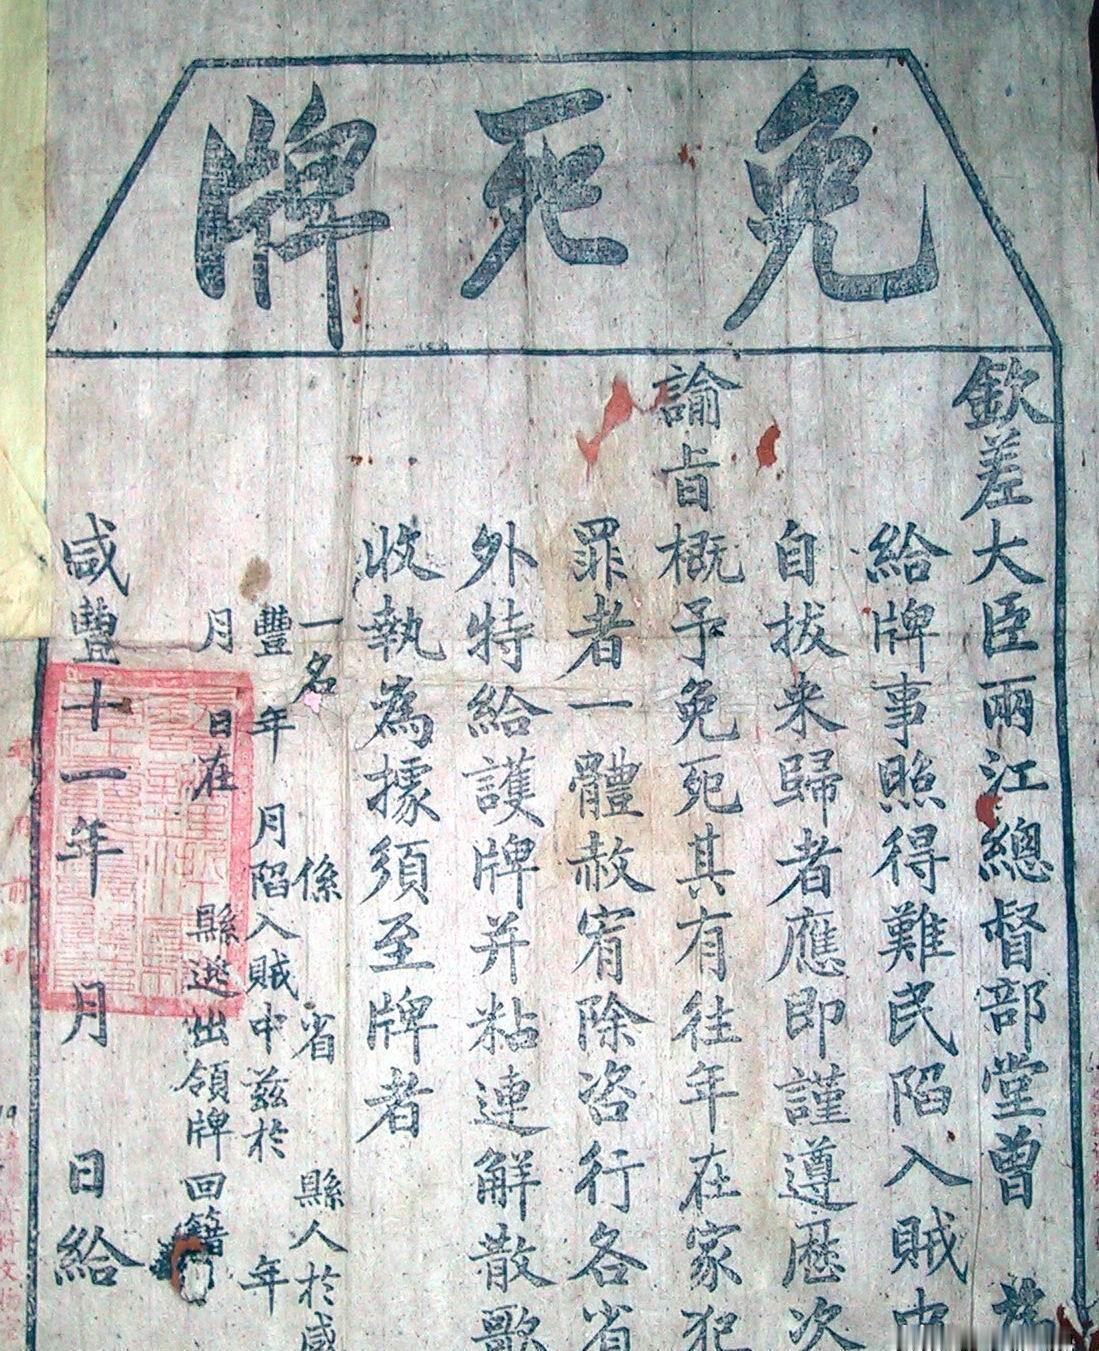 免死牌
欽差大臣兩江總督部堂曾 為
給牌事照得難民陷入賊中
自拔来歸者應即謹遵歷次
諭旨概予免死其有往年在家犯
罪者一體赦宥除咨行各省
外特給護牌并粘連解散歌
收執為據須至牌者
一名 係 省 縣人於咸
豐 年 月陷入賊中兹於 年
月 日在 縣逃出領牌回籍
咸豐十一年 月 日給